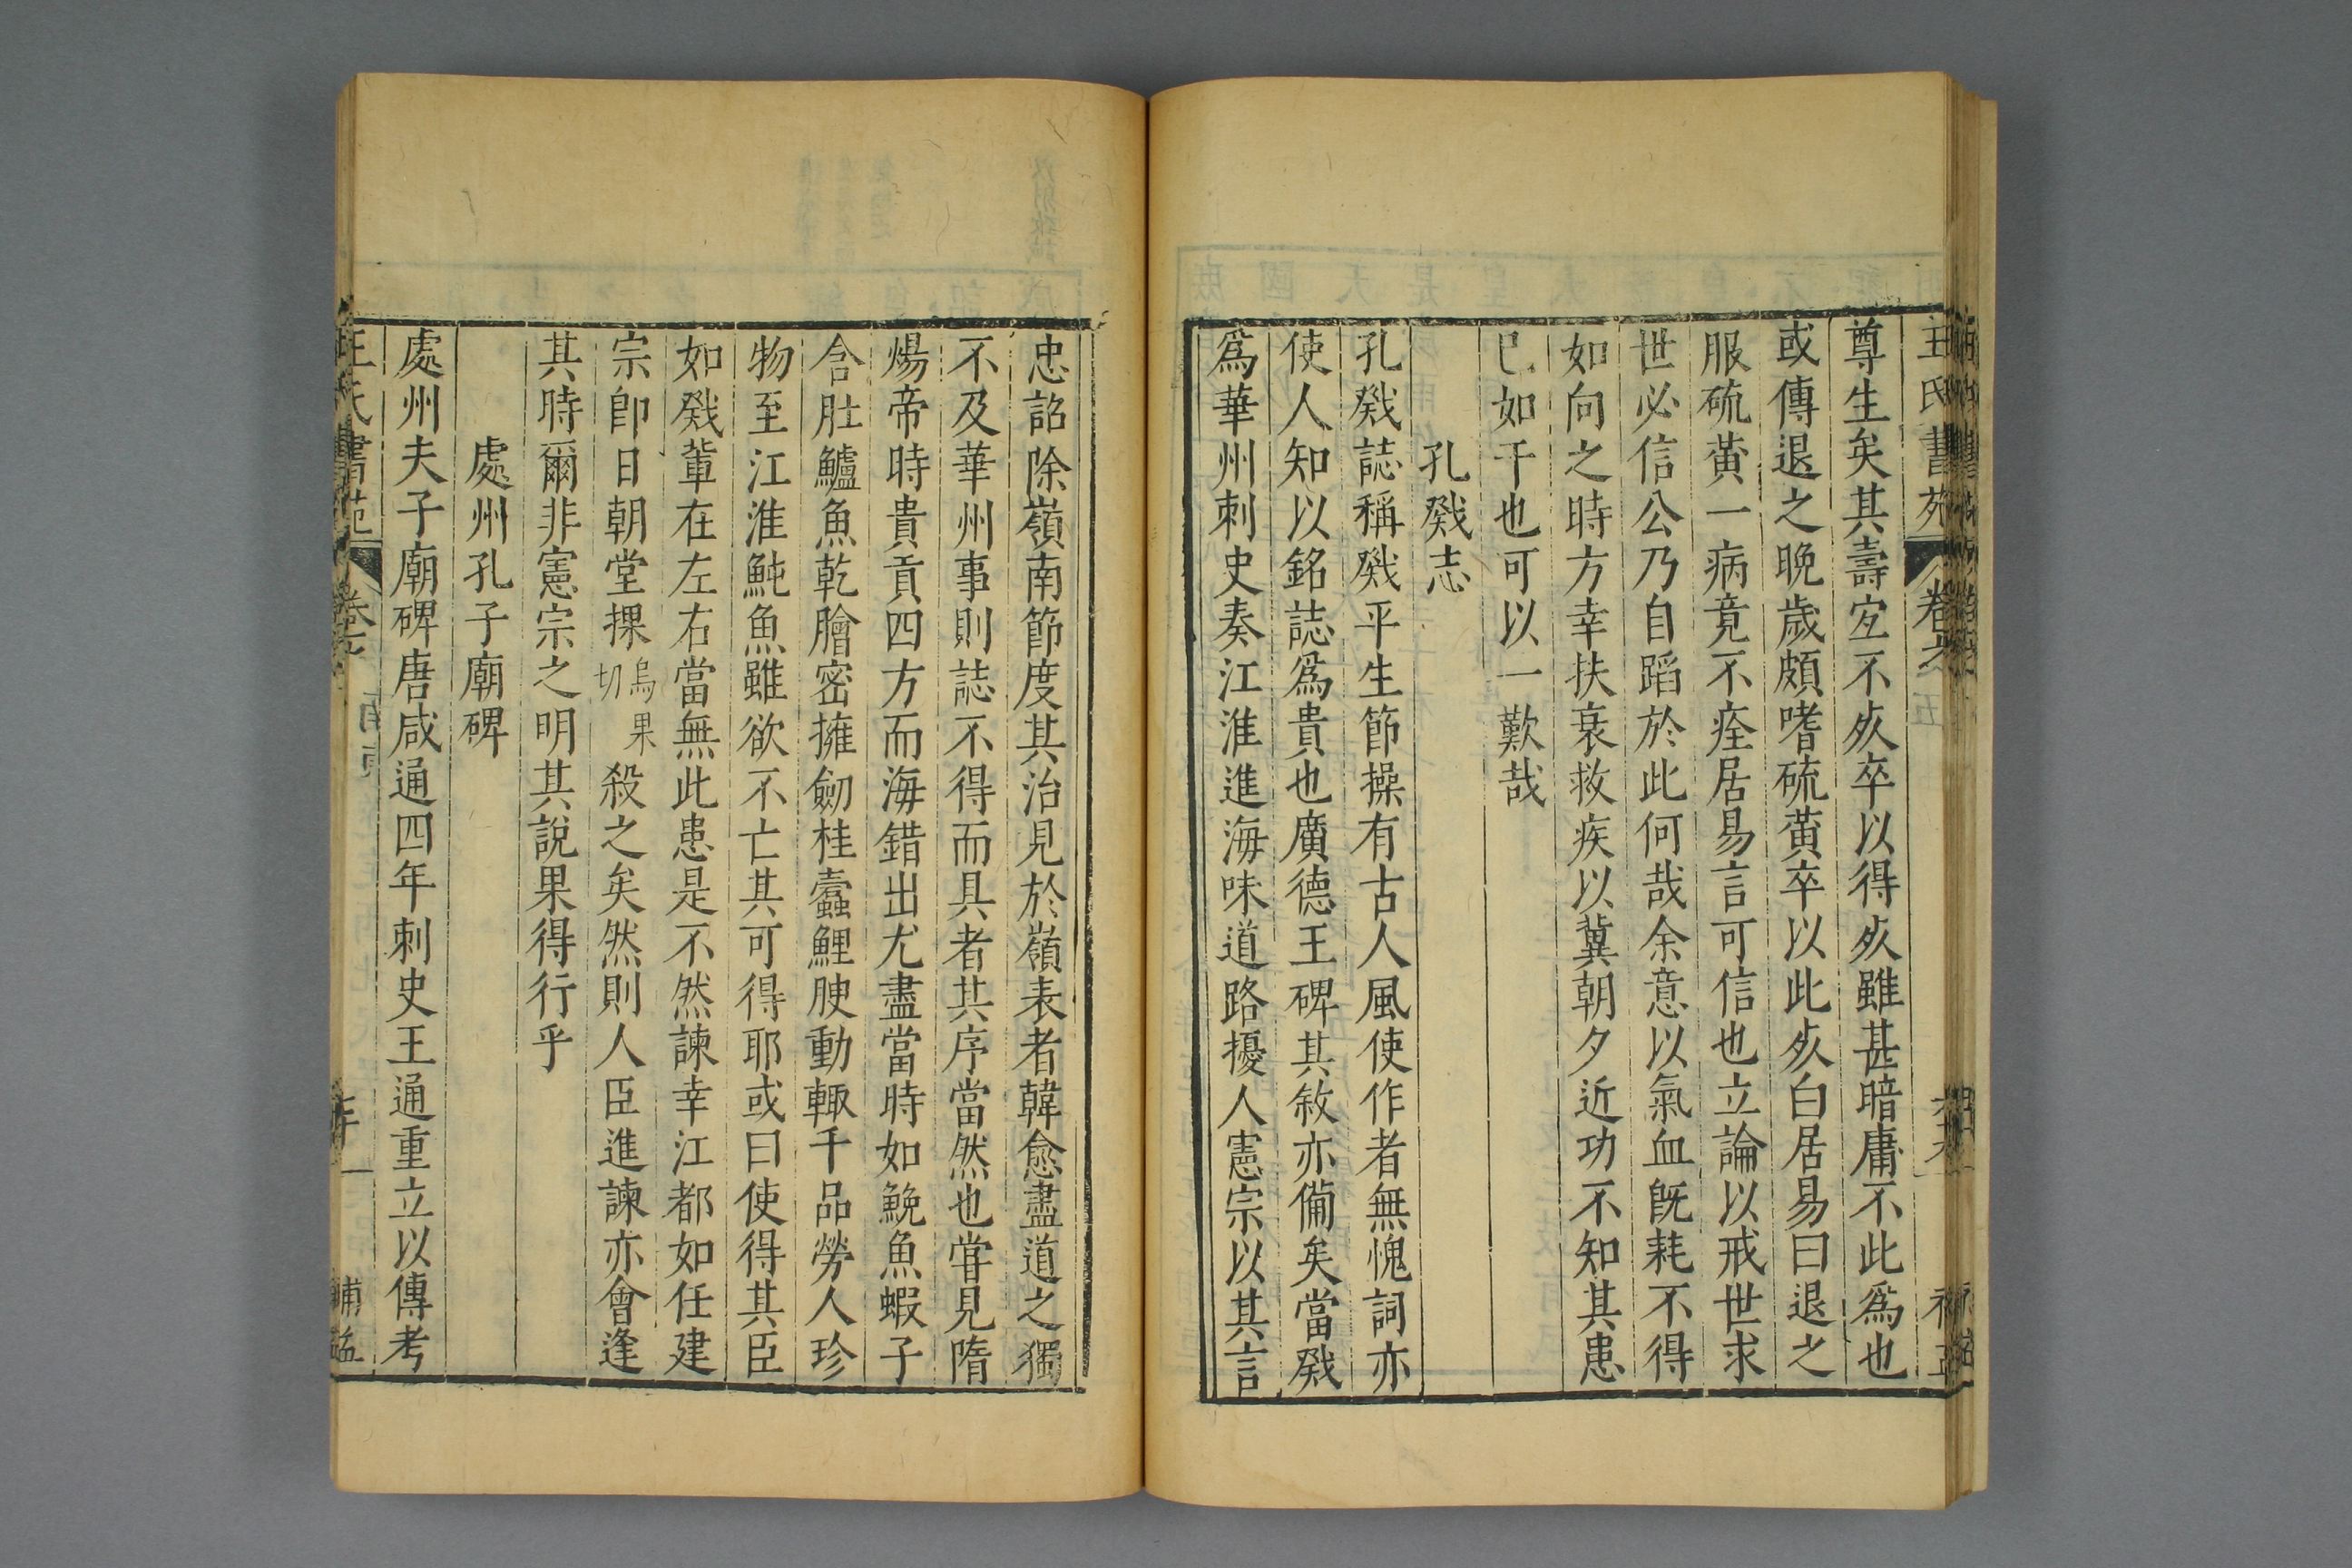 王氏書苑 卷之五
尊生矣其壽宐不夭卒以得夭雖甚暗庸不此爲也
或傳退之晚歲頗嗜硫黃卒以此夭白居易曰退之
服硫黃一病竟不痊居易言可信也立論以戒世求
世必信公乃自蹈於此何哉余意以氣血旣耗不得
如向之時方幸扶衰救疾以冀朝夕近功不知其患
已如干也可以一歎哉
孔戣志
孔戣誌稱戣平生節操有古人風使作者無愧詞亦
使人知以銘誌爲貴也廣德王碑其敘亦備矣當戣
爲華州刺史奏江淮進海味道路擾人憲宗以其言
忠詔除嶺南節度其治見於嶺表者韓愈盡道之獨
不及華州事則誌不得而具者其序當然也甞見隋
煬帝時貴貢四方而海錯出尤盡當時如鮸魚蝦子
含肚鱸魚乾膾密擁劒桂蠹鯉腴動輙千品勞人珍
物至江淮魨魚雖欲不亡其可得耶或曰使得其臣
如戣軰在左右當無此患是不然諫幸江都如任建
宗卽日朝堂捰烏果切殺之矣然則人臣進諫亦會逢
其時爾非憲宗之明其說果得行乎
處州孔子廟碑
處州夫子廟碑唐咸通四年刺史王通重立以傳考
王氏書苑 卷